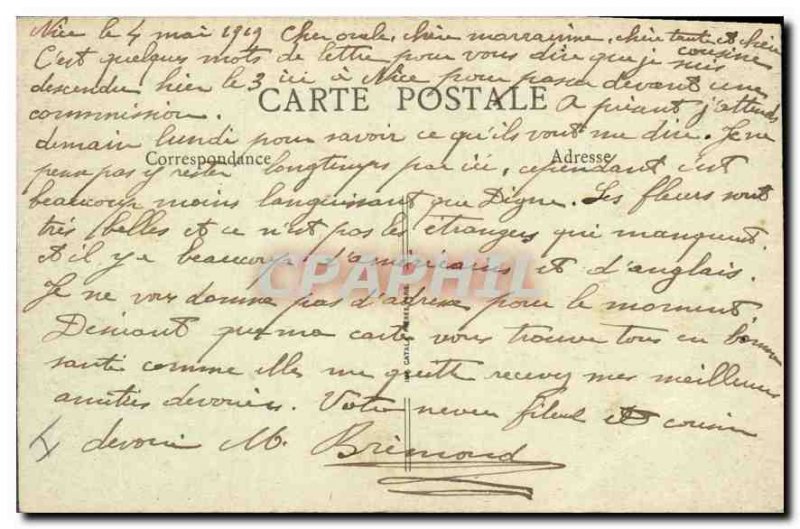 Nice le 4 mai 1919 Cher oncle, chère marraine, chère tante et chère
cousine
C'est quelques mots de lettre pour vous dire que je suis
descendu hier le 3 ici à Nice pour passer devant une
CARTE POSTALE
commission. A présent j'attends
demain lundi pour savoir ce qu'ils vont me dire. Je ne
Correspondance
Adresse
pense pas y rester longtemps par ici, cependant c'est
beaucoup moins languissant que Digne. Les fleurs sont
très belles et ce n'est pas les étrangers qui manquent.
et il y a beaucoup d'américains et d'anglais.
CPAPHIL
Je ne vous donne pas d'adresse pour le moment
Désirant que ma carte vous trouve tous en bonne
santé comme elle me quitte recevez mes meilleures
amitiés dévouées. Votre neveu filleul et cousin
dévoué M. Brémond
IMP. CATALA FRERES